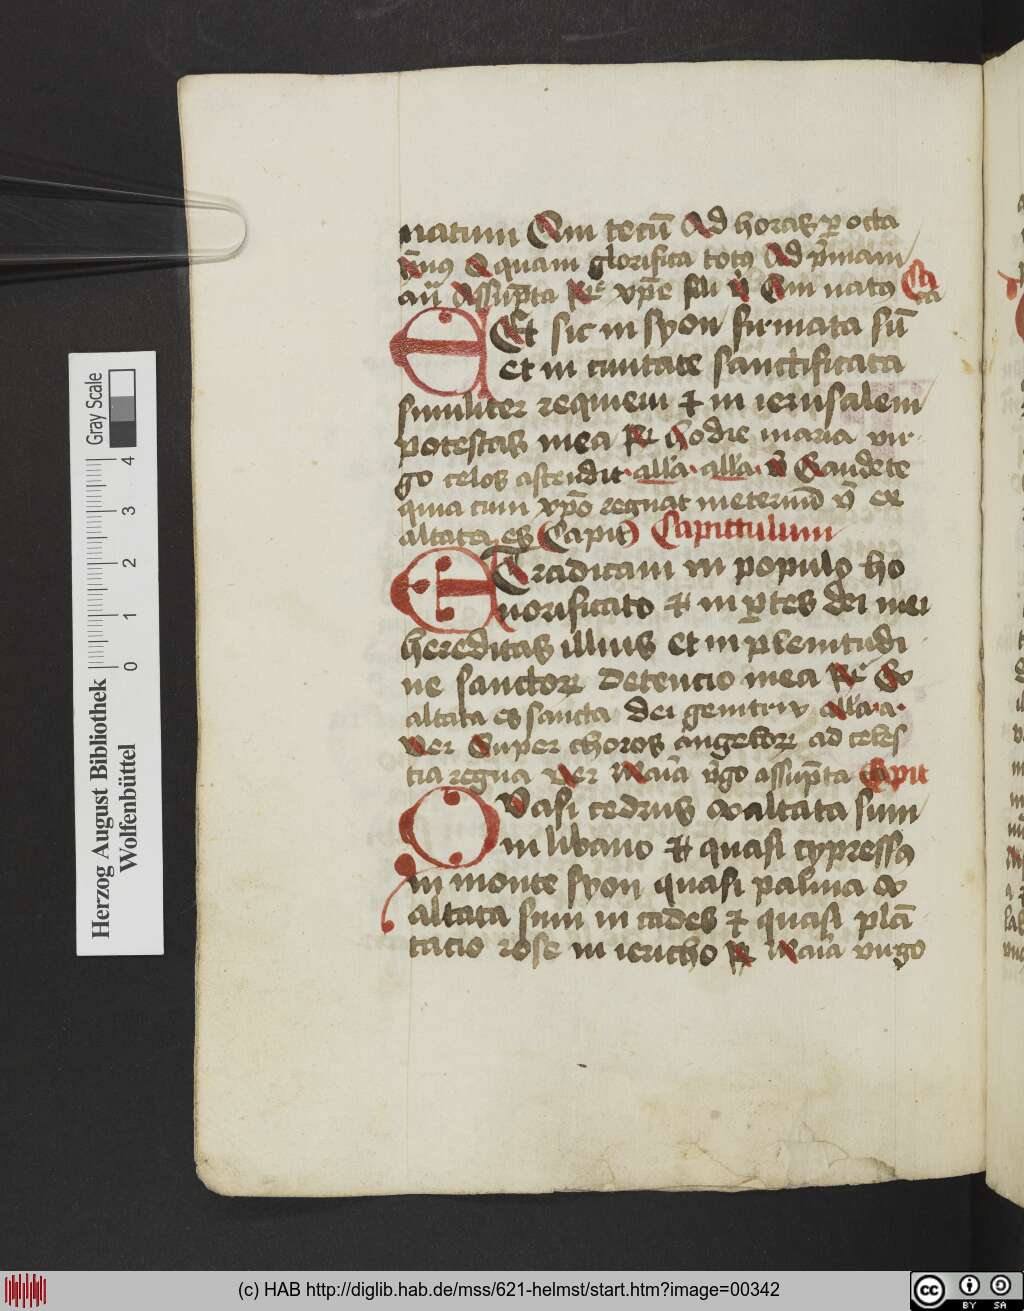 natum Qui tecū Ad horas p octa
vas O quam glorifica totꝰ Ad p̄mam
añ Assūpta R xp̄e fili v̄ Qui natꝰ Ca
Et sic in syon firmata sū pita
et in ciuitate sanctificata
similiter requieui ⁊ in ierusalem
potestas mea R Hodie maria vir
go celos ascendit · alla · alla · v̄ Gaudete
quia cum xp̄o regnat ineternū v̄ ex
altata es Capit Capittulum
Et radicaui in populo ho
norificato ⁊ in ꝑtes dei mei
hereditas illius et in plenitudi
ne sanctoꝝ detencio mea R Ex
altata es sancta dei genitrix alla · a ·
ver Super choros angeloꝝ ad celes
tia regna ver Maīa v̄go assūpta Capit
Qvasi cedrus exaltata sum
in libano ⁊ quasi cypressꝰ
in monte syon quasi palma ex
altata sum in cades ⁊ quasi plā
tacio rose in iericho R Maīa virgo
Herzog August Bibliothek
Wolfenbüttel
0 1 2 3 4
Gray Scale
(c) HAB http://diglib.hab.de/mss/621-helmst/start.htm?image=00342
cc BY SA